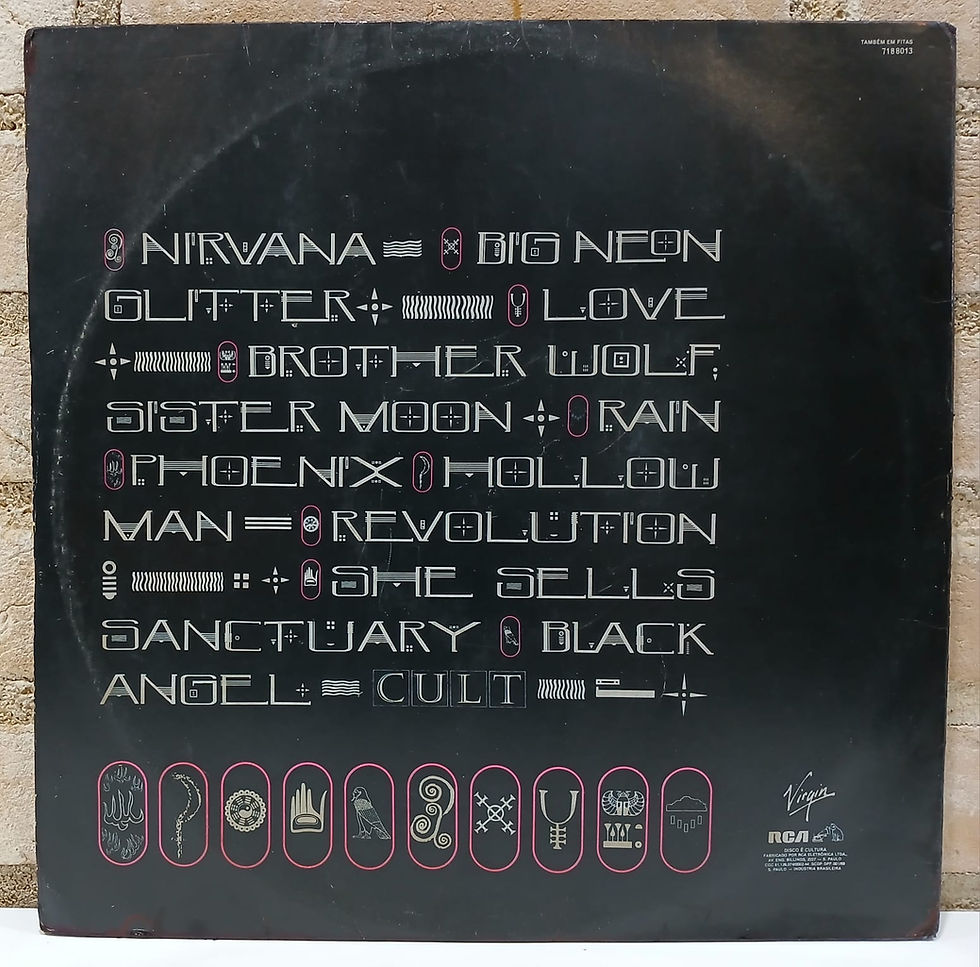 TAMBÉM EM FITAS
718 8013
NIRVANA BIG NEON
GLITTER LOVE
BROTHER WOLF,
SISTER MOON RAIN
PHOENIX HOLLOW
MAN REVOLUTION
SHE SELLS
SANCTUARY BLACK
ANGEL CULT
Virgin
RCA
DISCO É CULTURA
FABRICADO POR RCA ELETRÔNICA LTDA.
S. PAULO — INDÚSTRIA BRASILEIRA